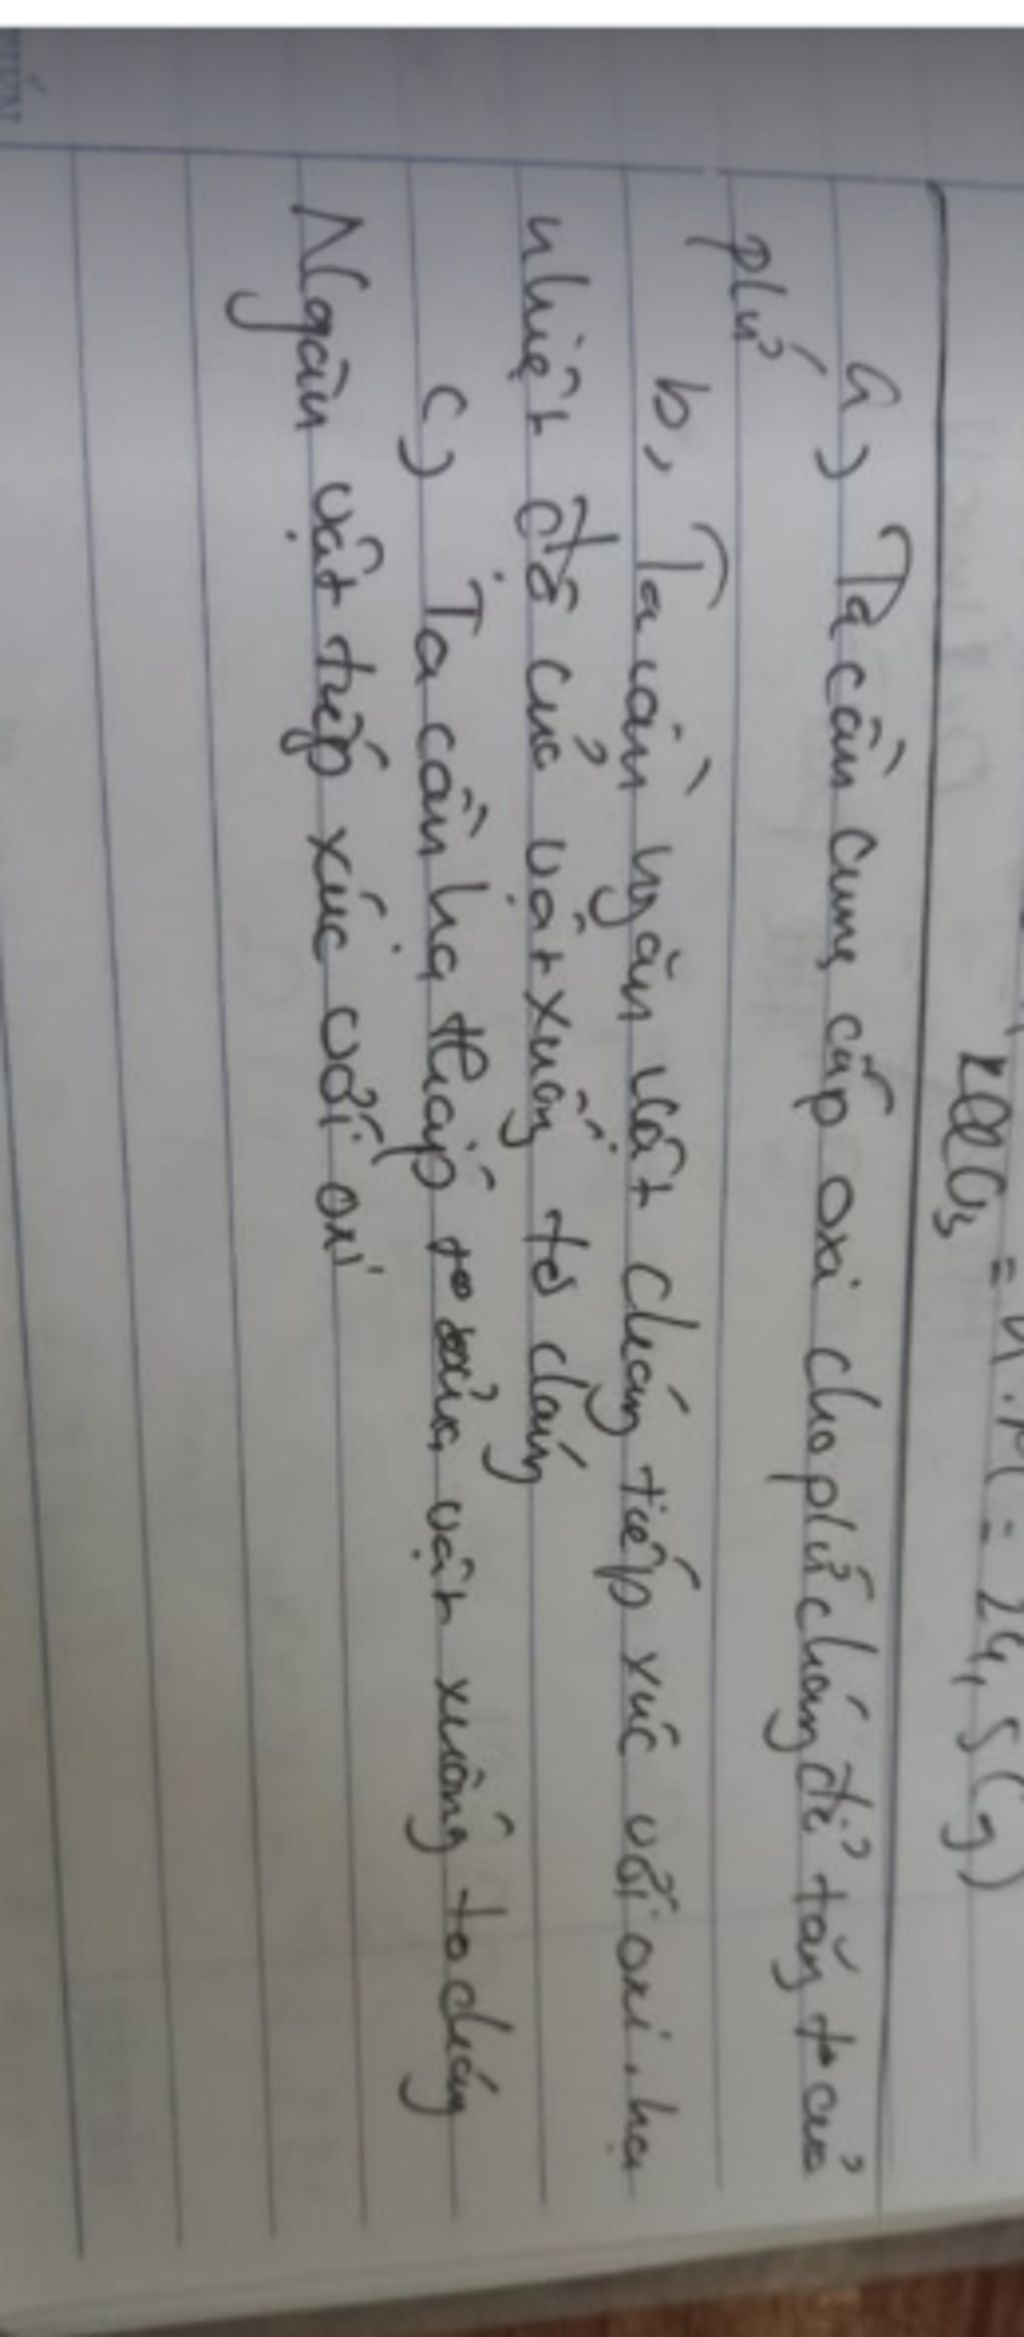 KClO3 = n.M = 24,5(g)
a) Ta cần cung cấp oxi cho phứ cháy để tăng t° của
phứ
b, Ta cần ngăn vật cháy tiếp xúc với oxi, hạ
nhiệt độ của vật xuống to cháy
c) Ta cần hạ thấp to của vật xuống to cháy
Ngăn vật tiếp xúc với oxi